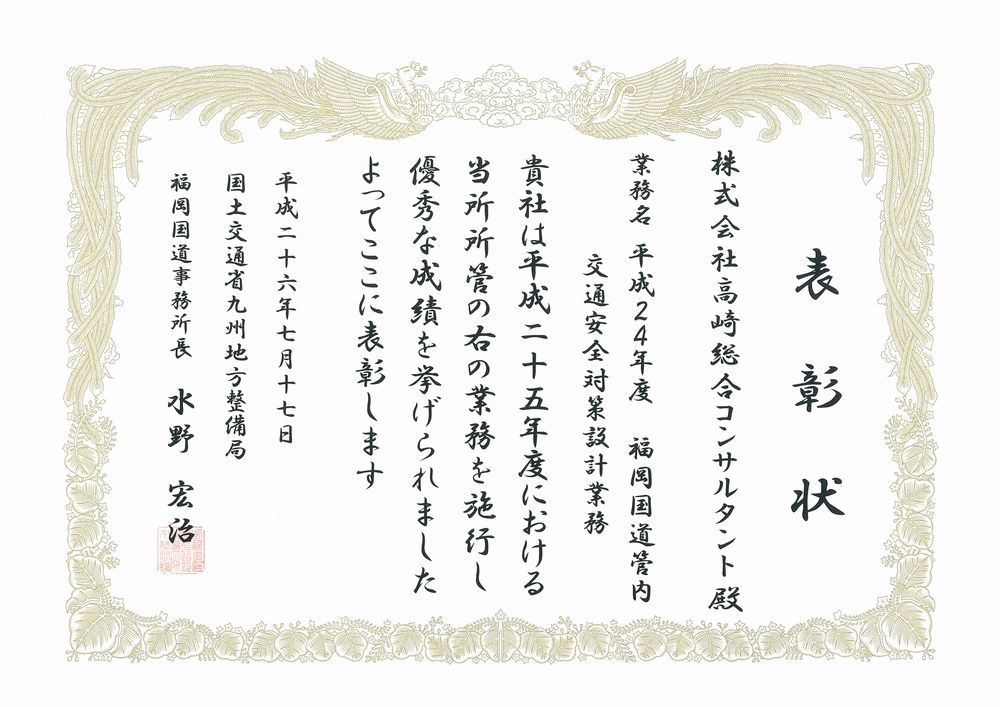 表彰状
株式会社高崎総合コンサルタント殿
業務名 平成24年度 福岡国道管内
交通安全対策設計業務
貴社は平成二十五年度における
当所所管の右の業務を施行し
優秀な成績を挙げられました
よってここに表彰します
平成二十六年七月十七日
国土交通省九州地方整備局
福岡国道事務所長 水野 宏治